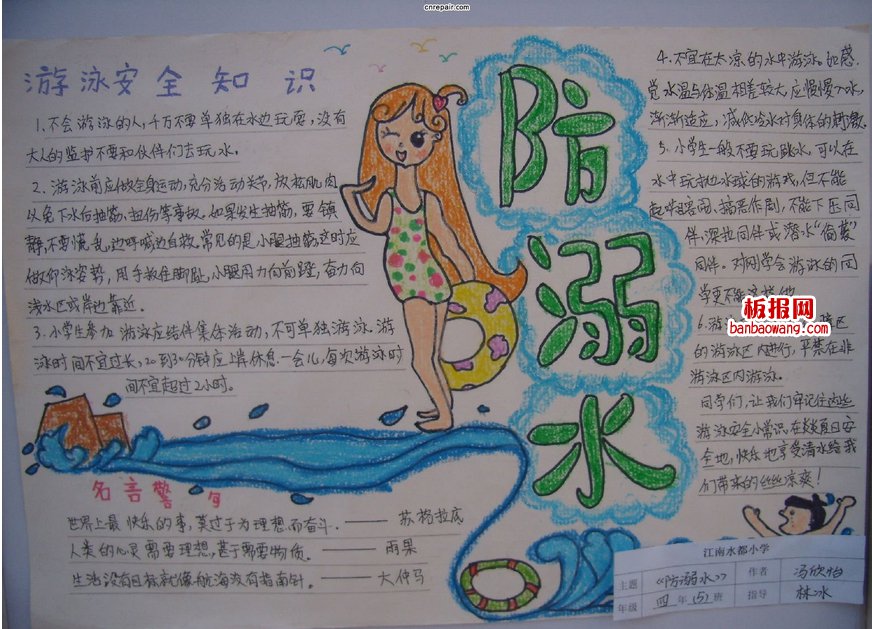 cnrepair.com
游泳安全知识
1.不会游泳的人,千万不要单独在水边玩耍,没有
大人的监护不要和伙伴们去玩水。
2.游泳前应做全身运动,充分活动关节,放松肌肉
以免下水后抽筋、扭伤等事故。如果发生抽筋,要镇
静,不要慌乱,边呼喊边自救。常见的是小腿抽筋,这时应
做仰泳姿势,用手扳住脚趾,小腿用力向前蹬,奋力向
浅水区或岸边靠近。
3.小学生参加游泳应结伴集体活动,不可单独游泳。游
泳时间不宜过长,20到30分钟应上岸休息一会儿,每次游泳时
间不宜超过2小时。
防溺水
4.不宜在太凉的水中游泳。如感
觉水温与体温相差较大,应慢慢入水,
渐渐适应,减低冷水对身体的刺激。
5.小学生一般不要玩跳水,可以在
水中玩抛水球的游戏,但不能
起哄瞎闹、搞恶作剧,不能下压同
伴、深拉同伴或潜水“偷袭”
同伴。对刚学会游泳的同
学更不能
6.游泳
的游泳区内进行,严禁在非
游泳区内游泳。
同学们,让我们牢记住这些
游泳安全小常识,在炎炎夏日安
全地、快乐地享受清水给我
们带来的丝丝凉爽!
板报网
banbaowang.com
名言警句
世界上最快乐的事,莫过于为理想而奋斗。——苏格拉底
人类的心灵需要理想,甚于需要物质。——雨果
生活没有目标就像航海没有指南针。——大仲马
江南水都小学
主题 《防溺水》 作者 冯欣怡
年级 四年(5)班 指导 林冰